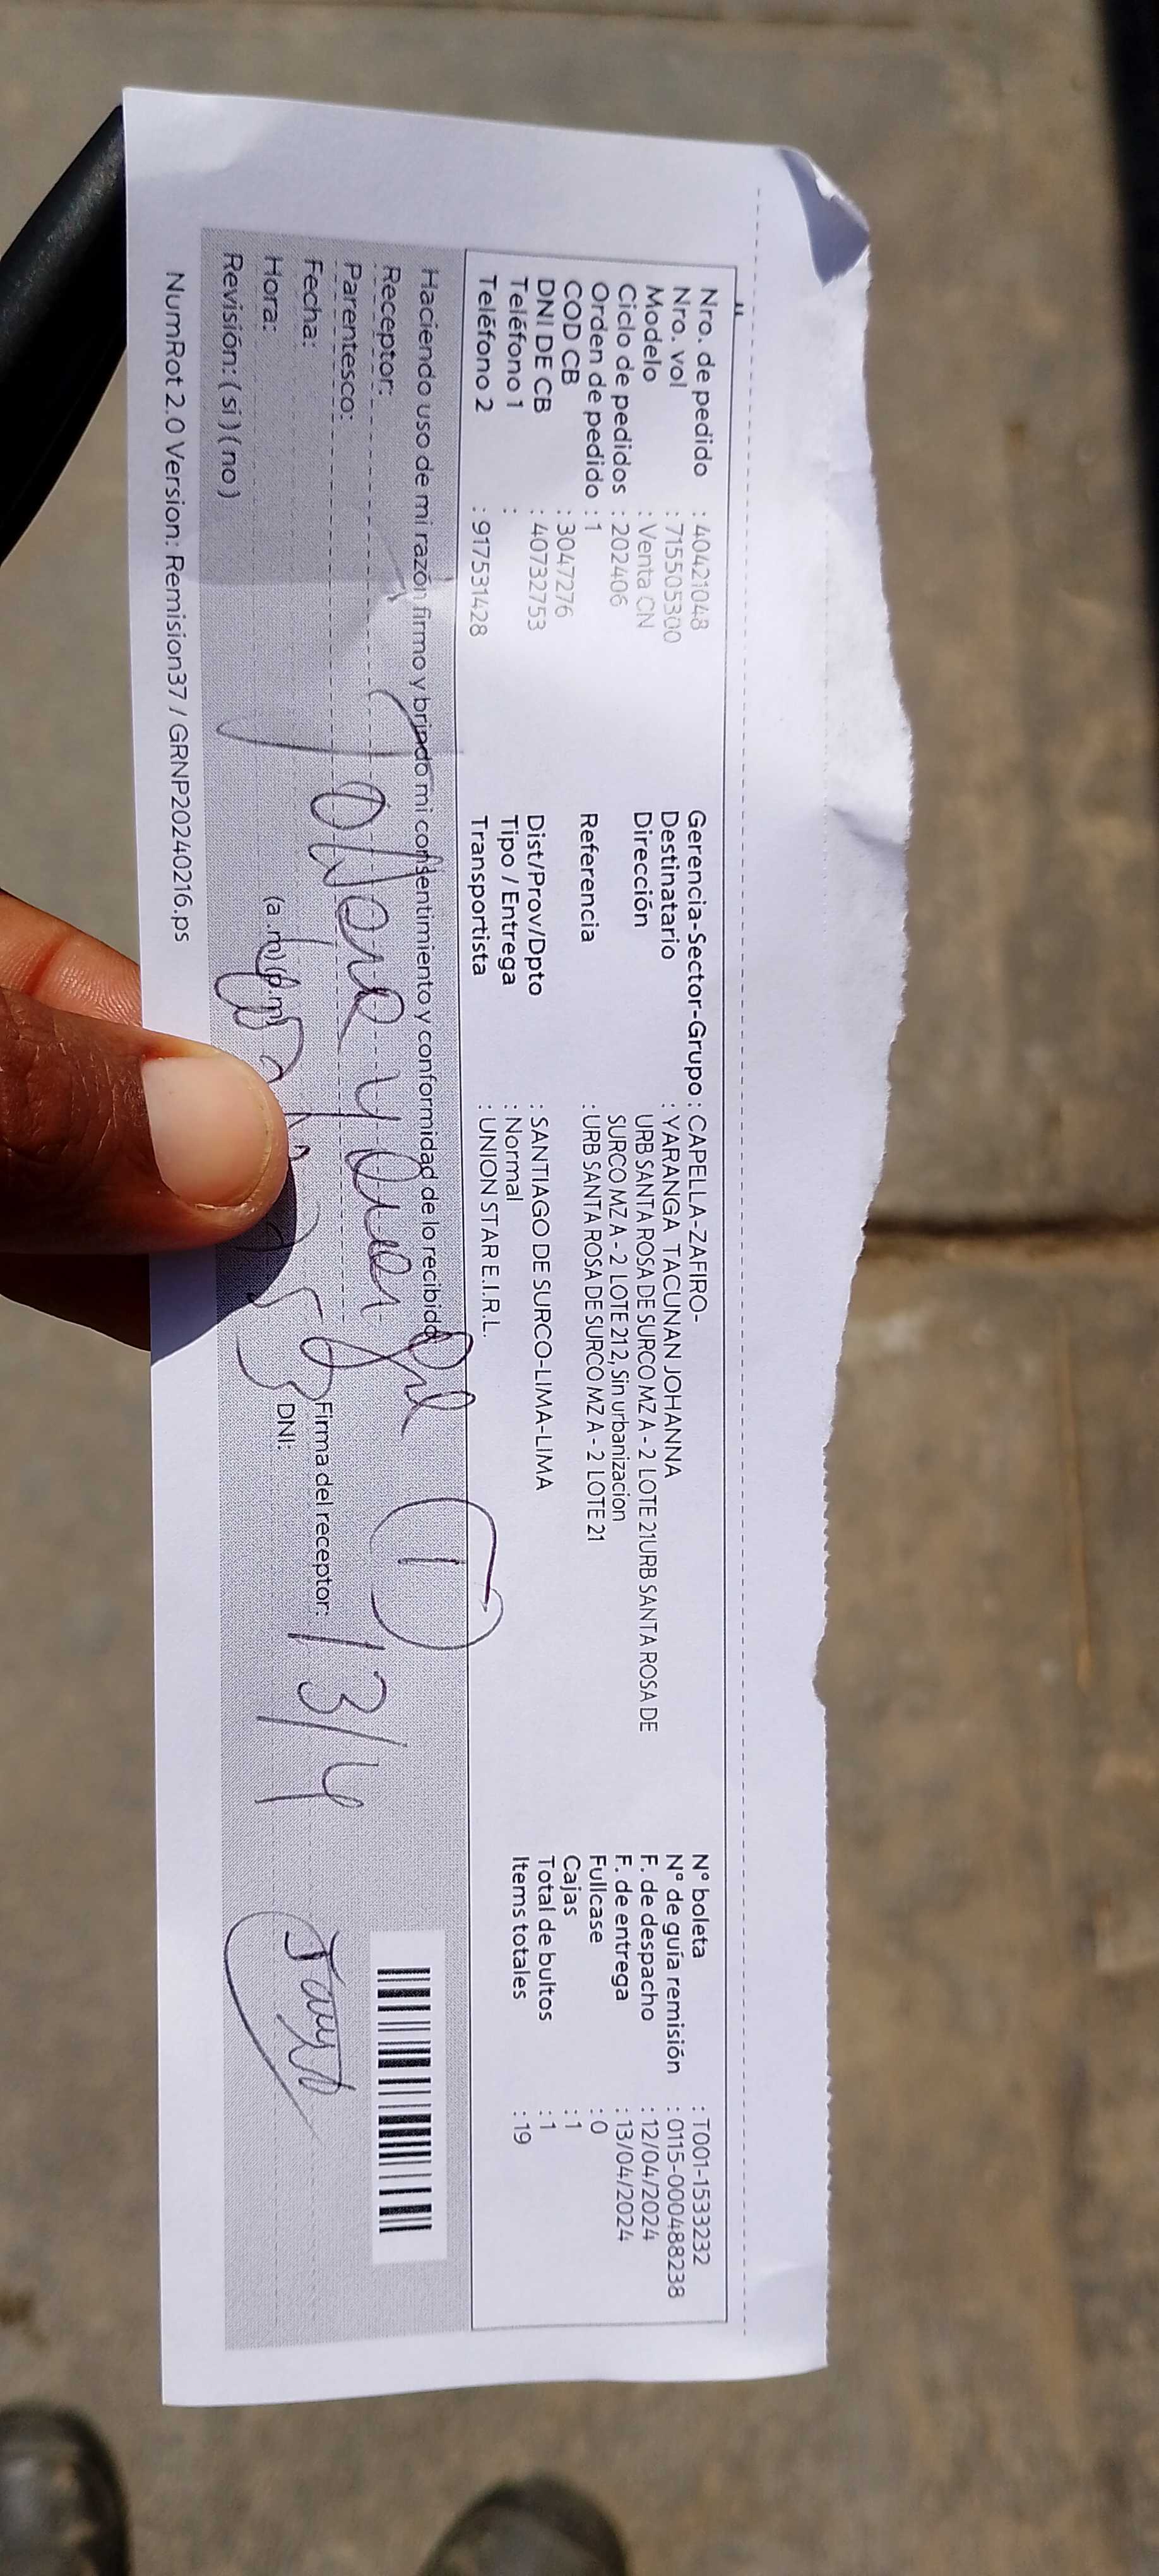 Nro. de pedido : 40421048
Nro. vol : 715505300
Modelo : Venta CN
Ciclo de pedidos : 202406
Orden de pedido : 1
COD CB : 3047276
DNI DE CB : 40732753
Teléfono 1 :
Teléfono 2 : 917531428
Gerencia-Sector-Grupo : CAPELLA-ZAFIRO-
Destinatario : YARANGA TACUNAN JOHANNA
Dirección URB SANTA ROSA DE SURCO MZ A - 2 LOTE 21URB SANTA ROSA DE
SURCO MZ A - 2 LOTE 21 2, Sin urbanizacion
Referencia : URB SANTA ROSA DE SURCO MZ A - 2 LOTE 21
Dist/Prov/Dpto : SANTIAGO DE SURCO-LIMA-LIMA
Tipo / Entrega : Normal
Transportista : UNION STAR E.I.R.L.
N° boleta : T001-1533232
N° de guía remisión : 0115-000488238
F. de despacho : 12/04/2024
F. de entrega : 13/04/2024
Fullcase : 0
Cajas : 1
Total de bultos : 1
Items totales : 19
Haciendo uso de mi razón firmo y brindo mi consentimiento y conformidad de lo recibido
Receptor:
Parentesco:
Fecha:
Hora: (a.m) (p.m)
Revisión: ( si ) ( no )
Firma del receptor:
DNI:
13/4
NumRot 2.0 Version: Remision37 / GRNP20240216.ps